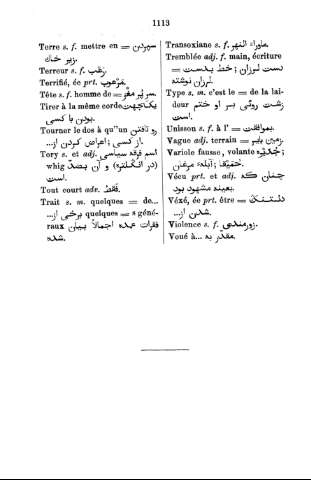 1113
Terre s. f. mettre en = سپردن
زیر خاك.
Terreur s. f. رعب.
Terrifié, ée prt. مرعوب.
Tête s. f. homme de =
Tirer à la même corde یکجهت
بودن با کسی.
Tourner le dos à qu"un رو تافتن
از کسی; اعراض کردن از...
Tory s. et adj. اسم فرقه سیاسی
whig (در انگلتره) و آن بضد
است.
Tout court adv. فقط.
Trait s. m. quelques = de...
برخی از... quelques = s géné-
raux فقرات عمده اجمالاً بیان
شده.
Transoxiane s. f. ماوراء النهر.
Tremblée adj. f. main, écriture
= دست لرزان; خط بدست
لرزان نوشته.
Type s. m. c'est le = de la lai-
deur زشت روئی بر او ختم
است.
Unisson s. f. à l' = بموافقت.
Vague adj. terrain = زمین بایر.
Variole fausse, volante
Vécu prt. et adj. چنان که
بعینه مشهود بود.
Véxé, ée prt. être = دلتنگ
شدن از...
Violence s. f. زورمندی.
Voué à... مقدر به...